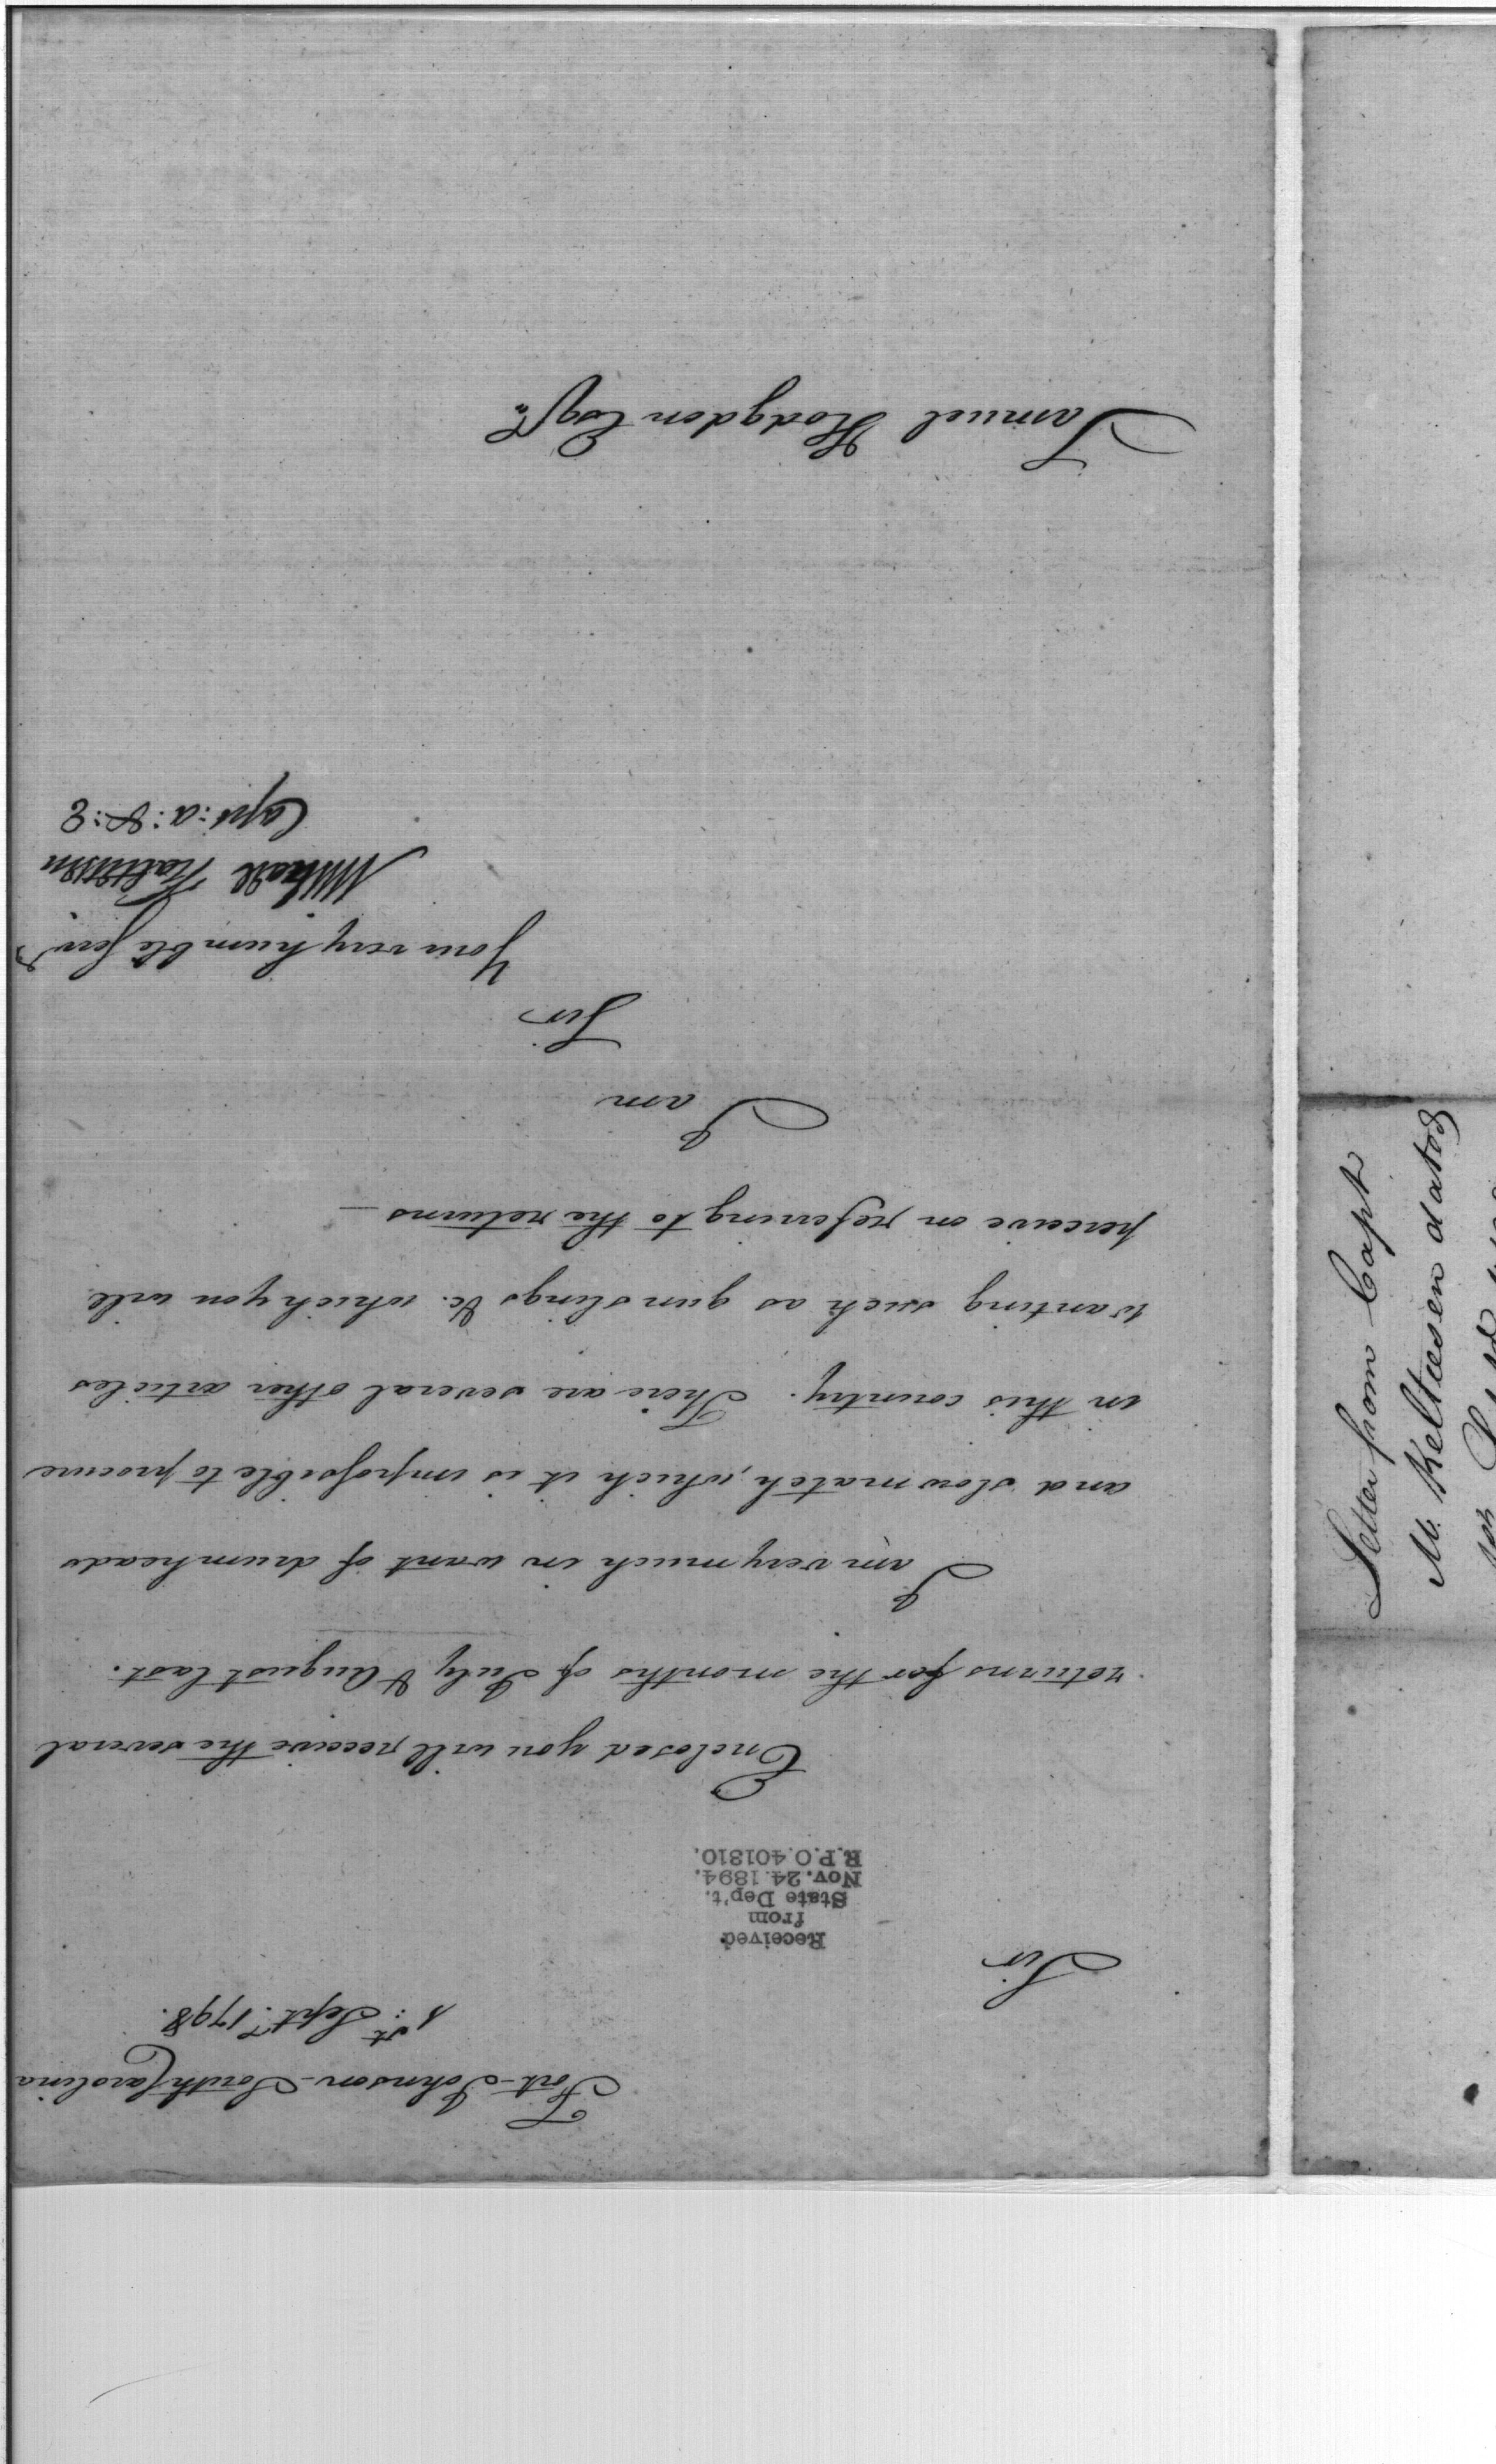 Fort-Johnson-South Carolina
1st: Septr. 1798.
Sir
Received
from
State Dep't.
Nov. 24. 1894.
R.P.O. 401810.
Enclosed you will receive the several
returns for the months of July & August last.
I am very much in want of drumheads
and slow match, which it is impossible to procure
in this country. There are several other articles
wanting such as gun slings &c. which you will
perceive on refering to the returns —
I am
Sir
Your very humble Servt.
Michael Kalteisen
Capt: a: & : E
Samuel Hodgdon Esqr.
Letter from Capt
M. Kelticsen dated